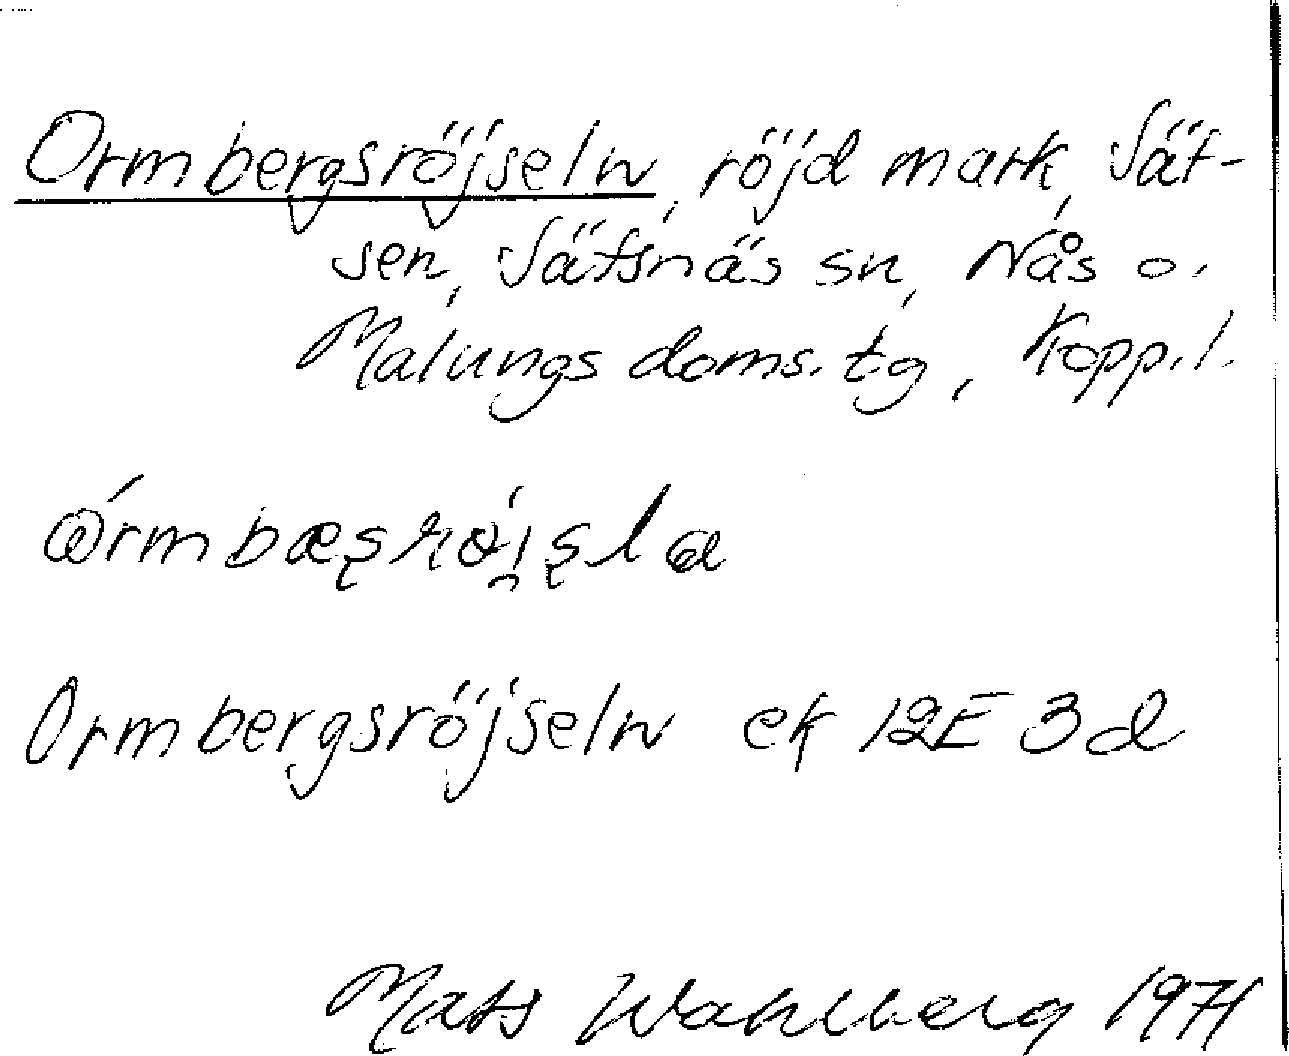 Ormbergsröjseln, röjd mark, Sät-
sen, Sätsnäs sn, Nås o.
Malungs doms. tg, Kopp. l.
Ormbergsröjseln ek 12E 3d
Mats Wahlberg 1971